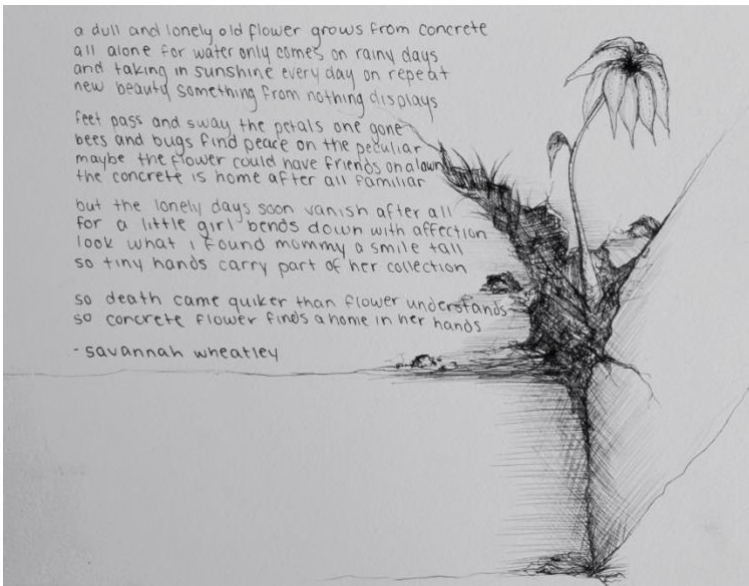 a dull and lonely old flower grows from concrete
all alone for water only comes on rainy days
and taking in sunshine every day on repeat
new beauty something from nothing displays
feet pass and sway the petals one gone
bees and bugs find peace on the peculiar
maybe the flower could have friends on a lawn
the concrete is home after all familiar
but the lonely days soon vanish after all
for a little girl bends down with affection
look what i found mommy a smile tall
so tiny hands carry part of her collection
so death came quiker than flower understands
so concrete flower finds a home in her hands
- savannah wheatley